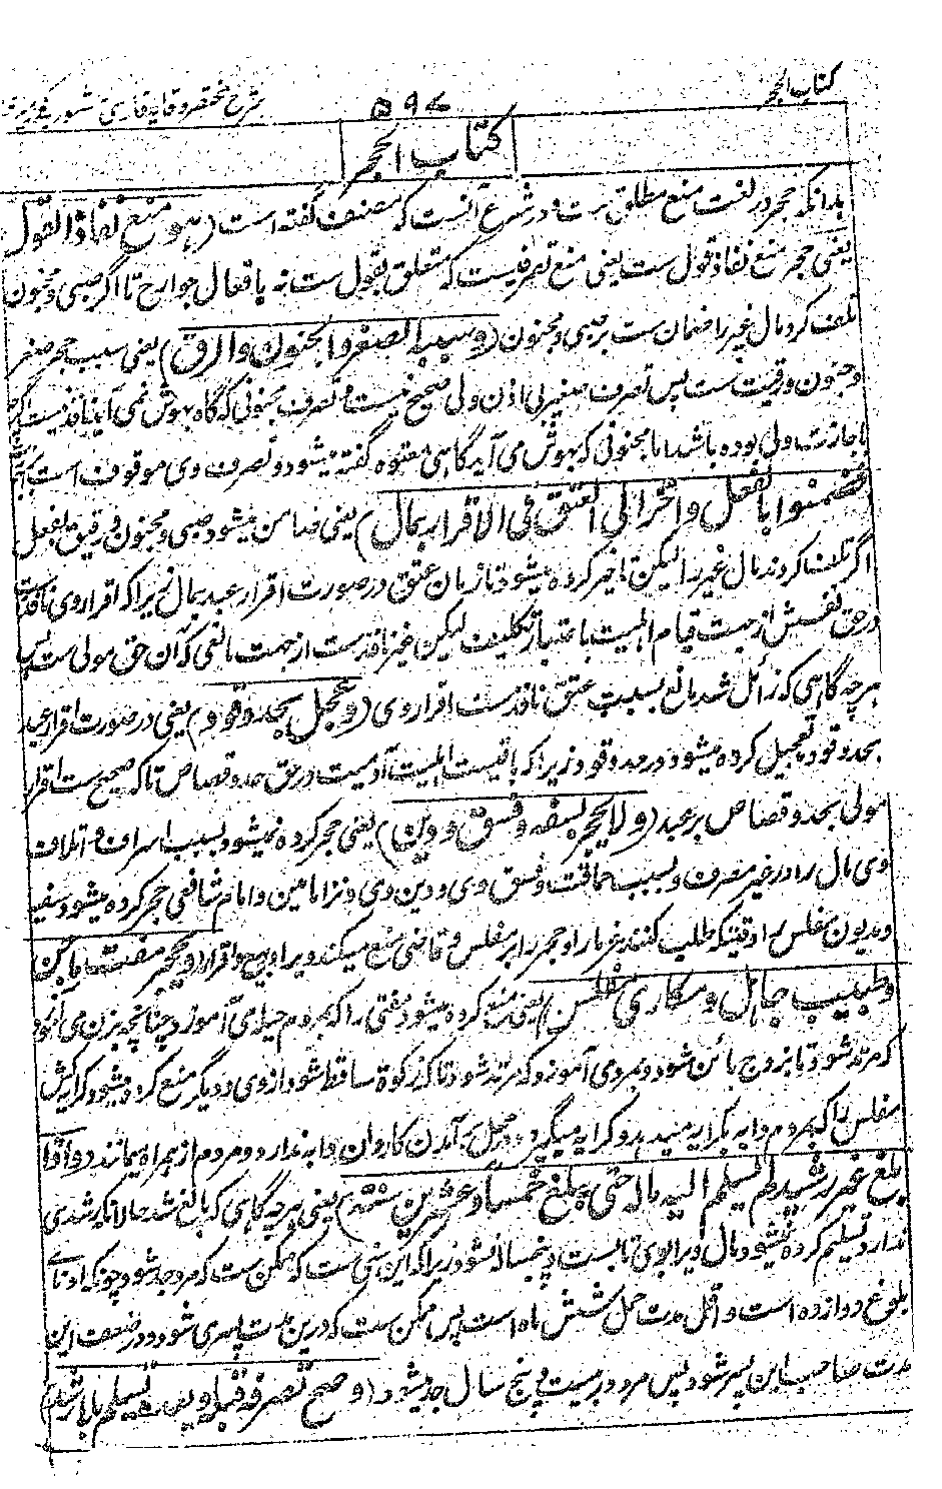 کتاب الحجر
شرح مختصر وقایه فارسی مشهور بکور میر
۵۹۷
کتاب الحجر
بدانکه حجر در لغت منع مطلق ست و در شرع آنست که مصنف گفته است (هو منع نفاذ القول
یعنی حجر منع نفاذ قول ست یعنی منع تصرفیست که متعلق بقول ست نه بافعال جوارح تا اگر صبی و مجنون
تلف کرد مال غیر را ضمان ست بر صبی و مجنون (وسببه الصغر والجنون والرق) یعنی سبب حجر صغر
و جنون و رقیت ست پس تصرف صغیر بی اذن ولی صحیح نیست و تصرف مجنونی که گاه بهوش نمی آید نافذ نیست اگرچه
باجازت ولی بوده باشد اما مجنونی که بهوش می آید گاهی معتوه گفته میشود و تصرف وی موقوف است
فضمنوا بالفعل واخر الی العتق فی الاقرار بمال) یعنی ضامن میشود صبی و مجنون و رقیق بفعل
اگر تلف کردند مال غیر را لیکن تاخیر کرده میشود تا زمان عتق در صورت اقرار عبد بمال زیرا که اقرار وی نافذ ست
در حق نفسش از جهت قیام اهلیت باعتبار تکلیف لیکن غیر نافذ ست از جهت مانعی که آن حق مولی ست پس
هرچه گاهی که زائل شد مانع بسبب عتق نافذ ست اقرار وی (وعجل بحد وقود) یعنی در صورت اقرار عبد
بحد و قود تعجیل کرده میشود در حد و قود زیرا که باقیست اهلیت آدمیت در حق حد و قصاص تا که صحیح ست اقرار
مولی بحد و قصاص بر عبد (ولا یحجر بسفه وفسق ودین) یعنی حجر کرده نمیشود بسبب اسراف و اتلاف
وی مال را در غیر مصرف و بسبب حماقت و فسق وی و دین وی و نزد امامین و امام شافعی حجر کرده میشود سفیه
و مدیون مفلس را وقتیکه طلب کنند غرما او حجر را بر مفلس و قاضی منع میکند ویرا و بیع و اقرار (ویحجر مفت ماجن
وطبیب جاهل ومکاری مفلس) یعنی منع کرده میشود مفتی را که بمردم حیله می آموزد چنانچه بزن می آموزد
که مرتد شود تا بزوج بائن شود و بمرد می آموزد که مرتد شود تا که زکوة ساقط شود از وی و دیگر منع کرده میشود کرایه کش
مفلس را که بمردم دابه بکرایه میدهد و کرایه میگیرد و محل بر آمدن کاروان دابه ندارد و مردم از همراه بمانند (واذا
بلغ غیر رشید لم یسلم الیه ماله حتی یبلغ خمسا وعشرین سنة) یعنی هرچه گاهی که بالغ شد حالانکه رشدی
ندارد تسلیم کرده نمیشود مال ویرا بوی تا بیست و پنجساله نشود زیرا که این سنی ست که ممکن ست که مرد جد شود چونکه ادنای
بلوغ دوازده است و اقل مدت حمل شش ماه است پس ممکن ست که درین مدت پسری شود و در ضعف این
مدت صاحب این پسر شود پس مرد در بیست و پنج سال جد میشود (وصح تصرفه قبله وبعده یسلم بلا رشد)